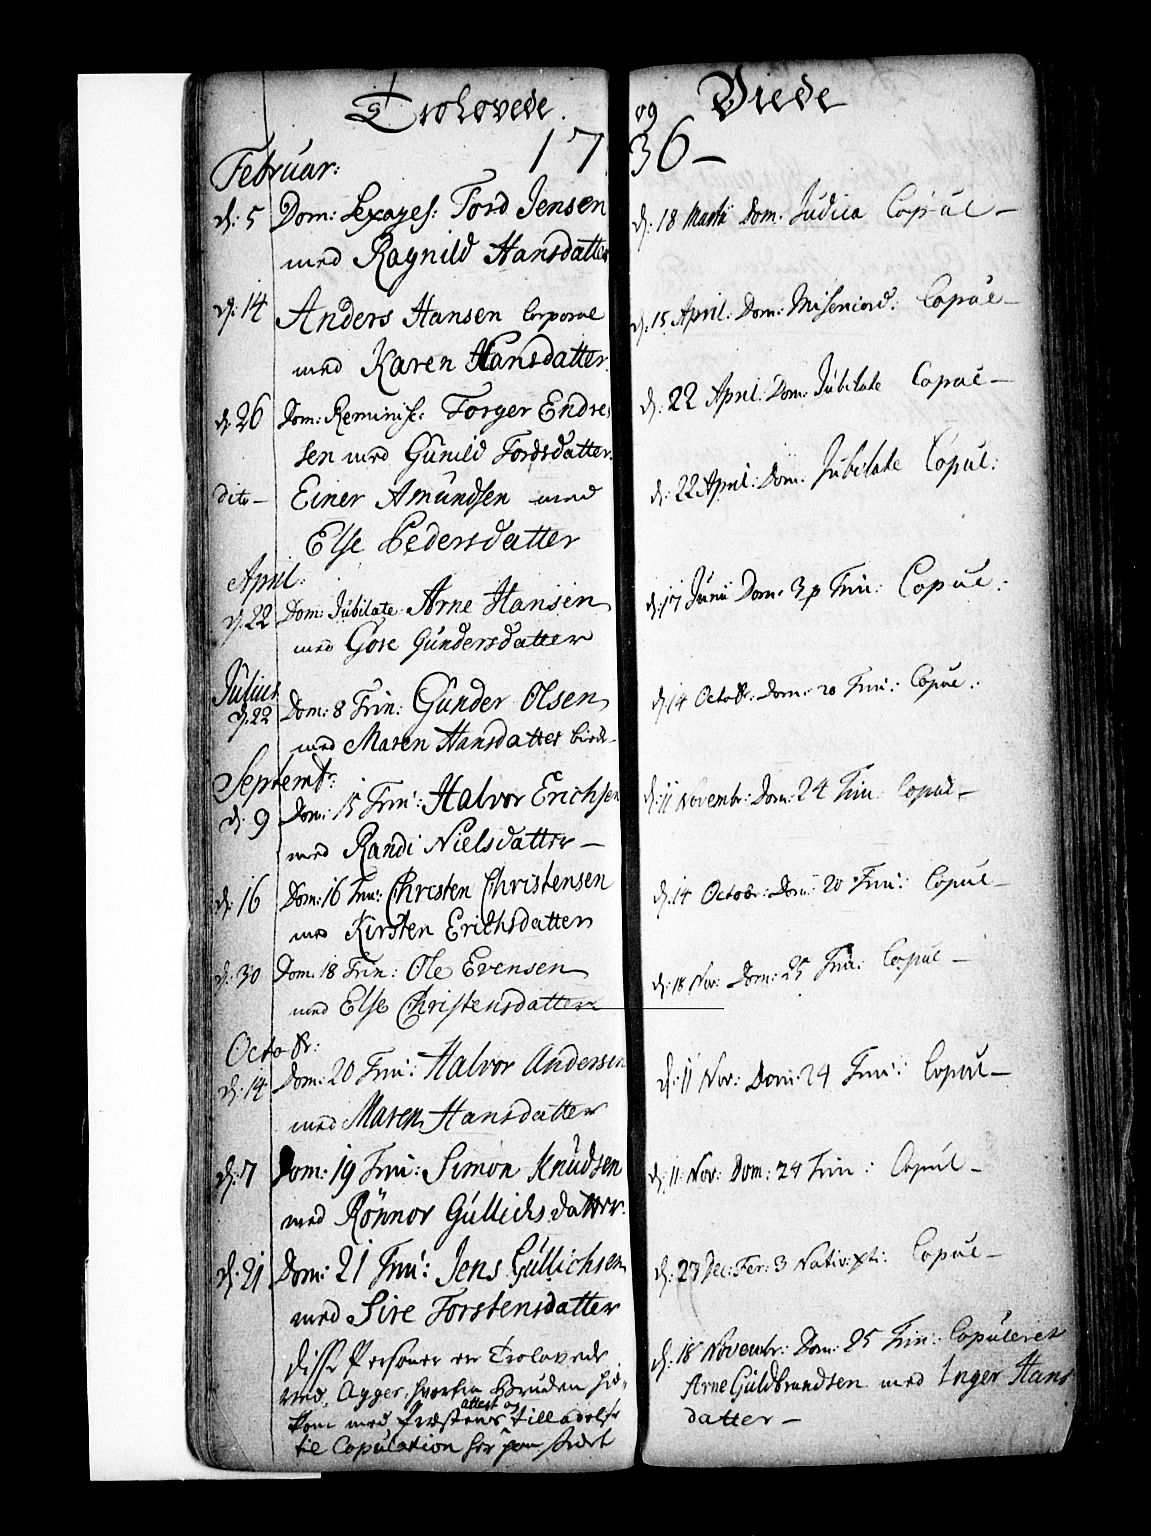 Trolovede
Februar:
17
d: 5 Dom: Sexages: Tord Jensen
med Ragnild Hansdatter
d: 14 Anders Hansen Corporal
med Karen Hansdatter
d. 26 Dom: Reminisc: Torger Endre
sen med Gunild Tordsdatter
dito – Einer Amundsen med
Else Pedersdatter
April:
d. 22 Dom: Jubilate Arne Hansen
med Gore Gundersdatter
Julius
d. 22 Dom: 8 Trin: Gunder Olsen
med Maren Hansdatter
Septembr:
d: 9 Dom: 15 Trin: Halvor Erichsen
med Randi Nielsdatter –
d: 16 Dom: 16 Trin: Christen Christensen
med Kirsten Erichsdatter
d: 30 Dom. 18 Trin: Ole Evensen
med Else Christensdatter
Octobr:
d: 14 Dom: 20 Trin: Halvor Andersen
med Maren Hansdatter
d: 7 Dom: 19 Trin: Simon Knudsen
med Rönnor Gullichsdatter
d: 21 Dom: 21 Trin: Jens Gullichsen
med Sire Torstensdatter
disse Personer ere Trolovede
ved Agger, hvorfra Bruden hid
kom med Præstens attest og tilladelse
til Copulation her paa stædet
og Viede
36 –
d: 18 Martii Dom: Judica Copul –
d: 15 April: Dom: Misericord: Copul –
d: 22 April: Dom: Jubilate Copul –
d: 22 April: Dom: Jubilate Copul:
d: 17 Junii Dom: 3 p Trin: Copul:
d: 14 Octobr: Dom: 20 Trin: Copul:
d: 11 Novembr: Dom: 24 Trin Copul –
d: 14 Octobr: Dom: 20 Trin: Copul –
d: 18 Nov: Dom: 25 Trin: Copul –
d: 11 Nov: Dom: 24 Trin: Copul –
d: 11 Nov: Dom: 24 Trin: Copul –
d: 27 Dec: Fer: 3 Nativ: xti: Copul –
d: 18 Novembr: Dom: 25 Trin: Copuleret
Arne Guldbrandsen med Inger Hans
datter –